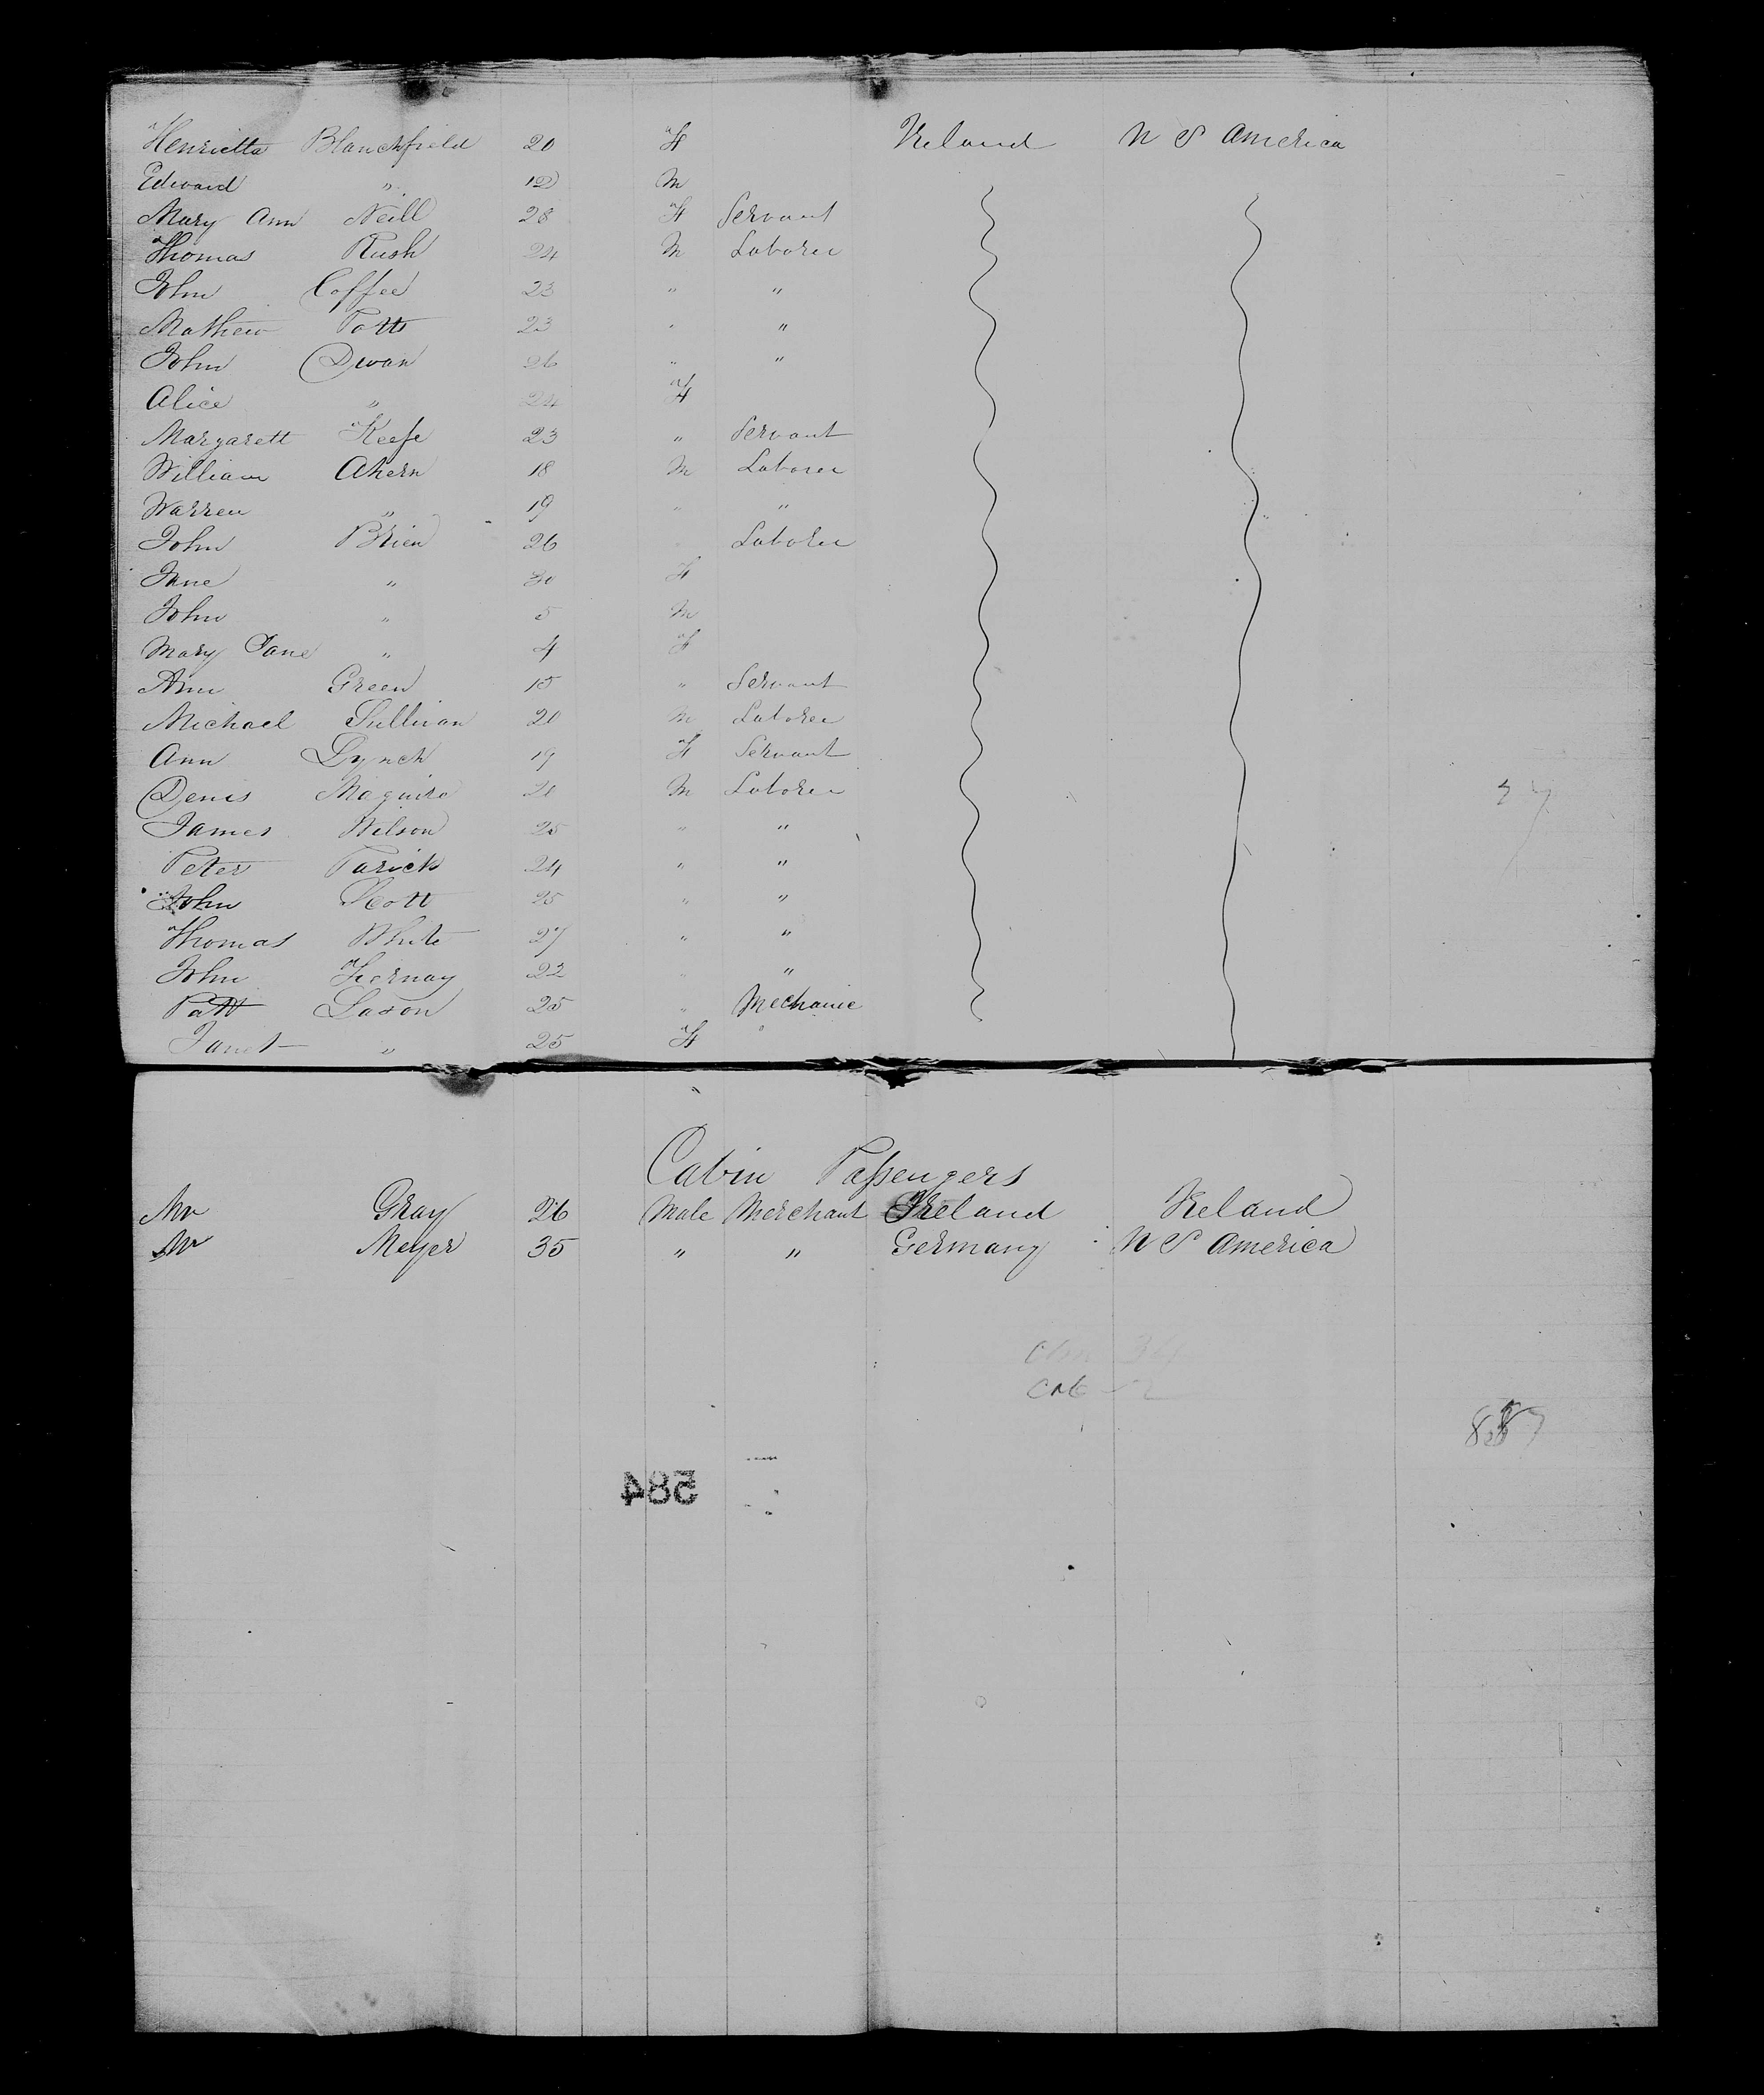 Henrietta Blanchfield 20 F Ireland U S America
Edward " 12 M
Mary Ann Neill 28 F Servant
Thomas Rush 24 M Laborer
John Coffee 23 " "
Mathew Potts 23 " "
John Dwan 26 " "
Alice " 24 F
Margarett Keefe 23 " Servant
William Ahern 18 M Laborer
Warren " 19 " "
John Brien 26 Laborer
Jane " 30 F
John " 5 M
Mary Jane " 4 F
Ann Green 15 " Servant
Michael Sullivan 20 M Laborer
Ann Lynch 19 F Servant
Denis Maguire 20 M Laborer
James Wilson 25 " "
Peter 24 " "
John Scott 25 " "
Thomas White 27 " "
John 22 " "
Patt Saxon 25 " Mechanic
Janet " 25 F
Cabin Passengers
Mr Gray 26 Male Merchant Ireland Ireland
Mr Meyer 35 " " Germany U S America
584